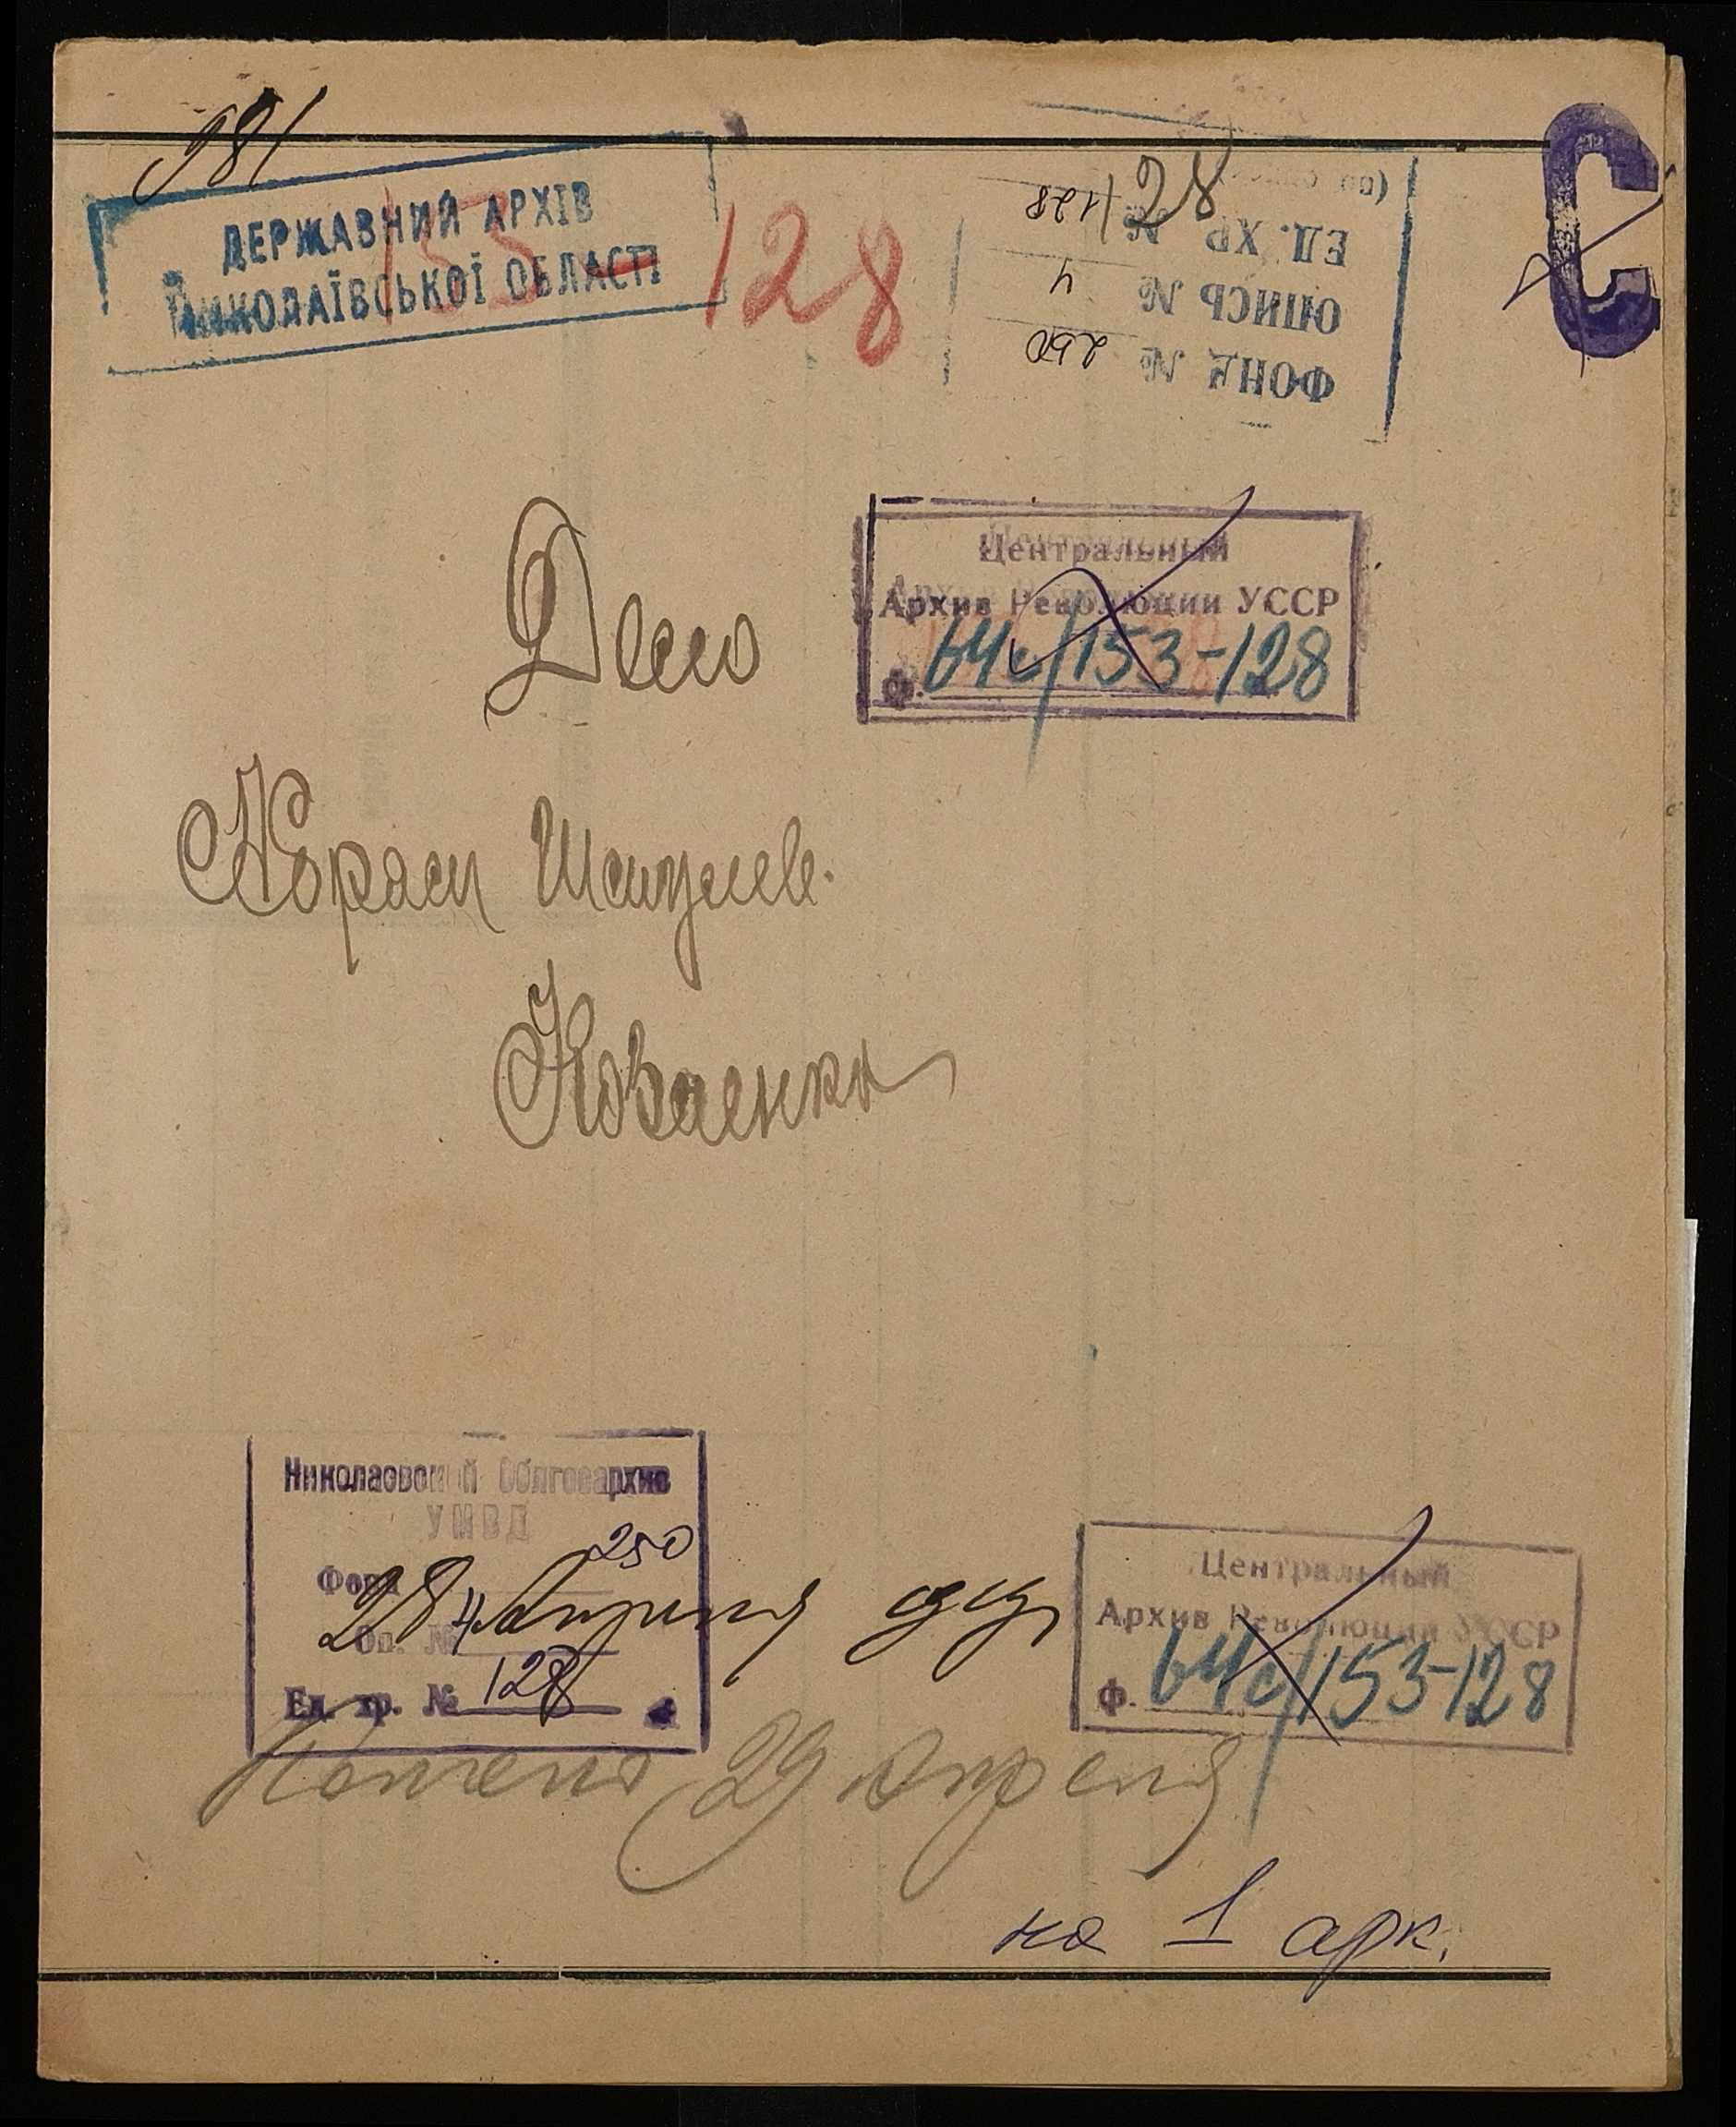 981
ДЕРЖАВНИЙ АРХІВ
МИКОЛАЇВСЬКОЇ ОБЛАСТІ
153-128
128
ФОНД № 250
ОПИСЬ № 4
ЕД. ХР. № 1128
С
Дело
Центральный
Архив Революции УССР
Ф. 64с/153-128
Николаевский Облгосархив
УМВД
Фонд 250
Оп. № 4
Ед. хр. № 128
28 Апреля
Центральный
Архив Революции УССР
Ф. 64с/153-128
29 апреля
на 1 арк.